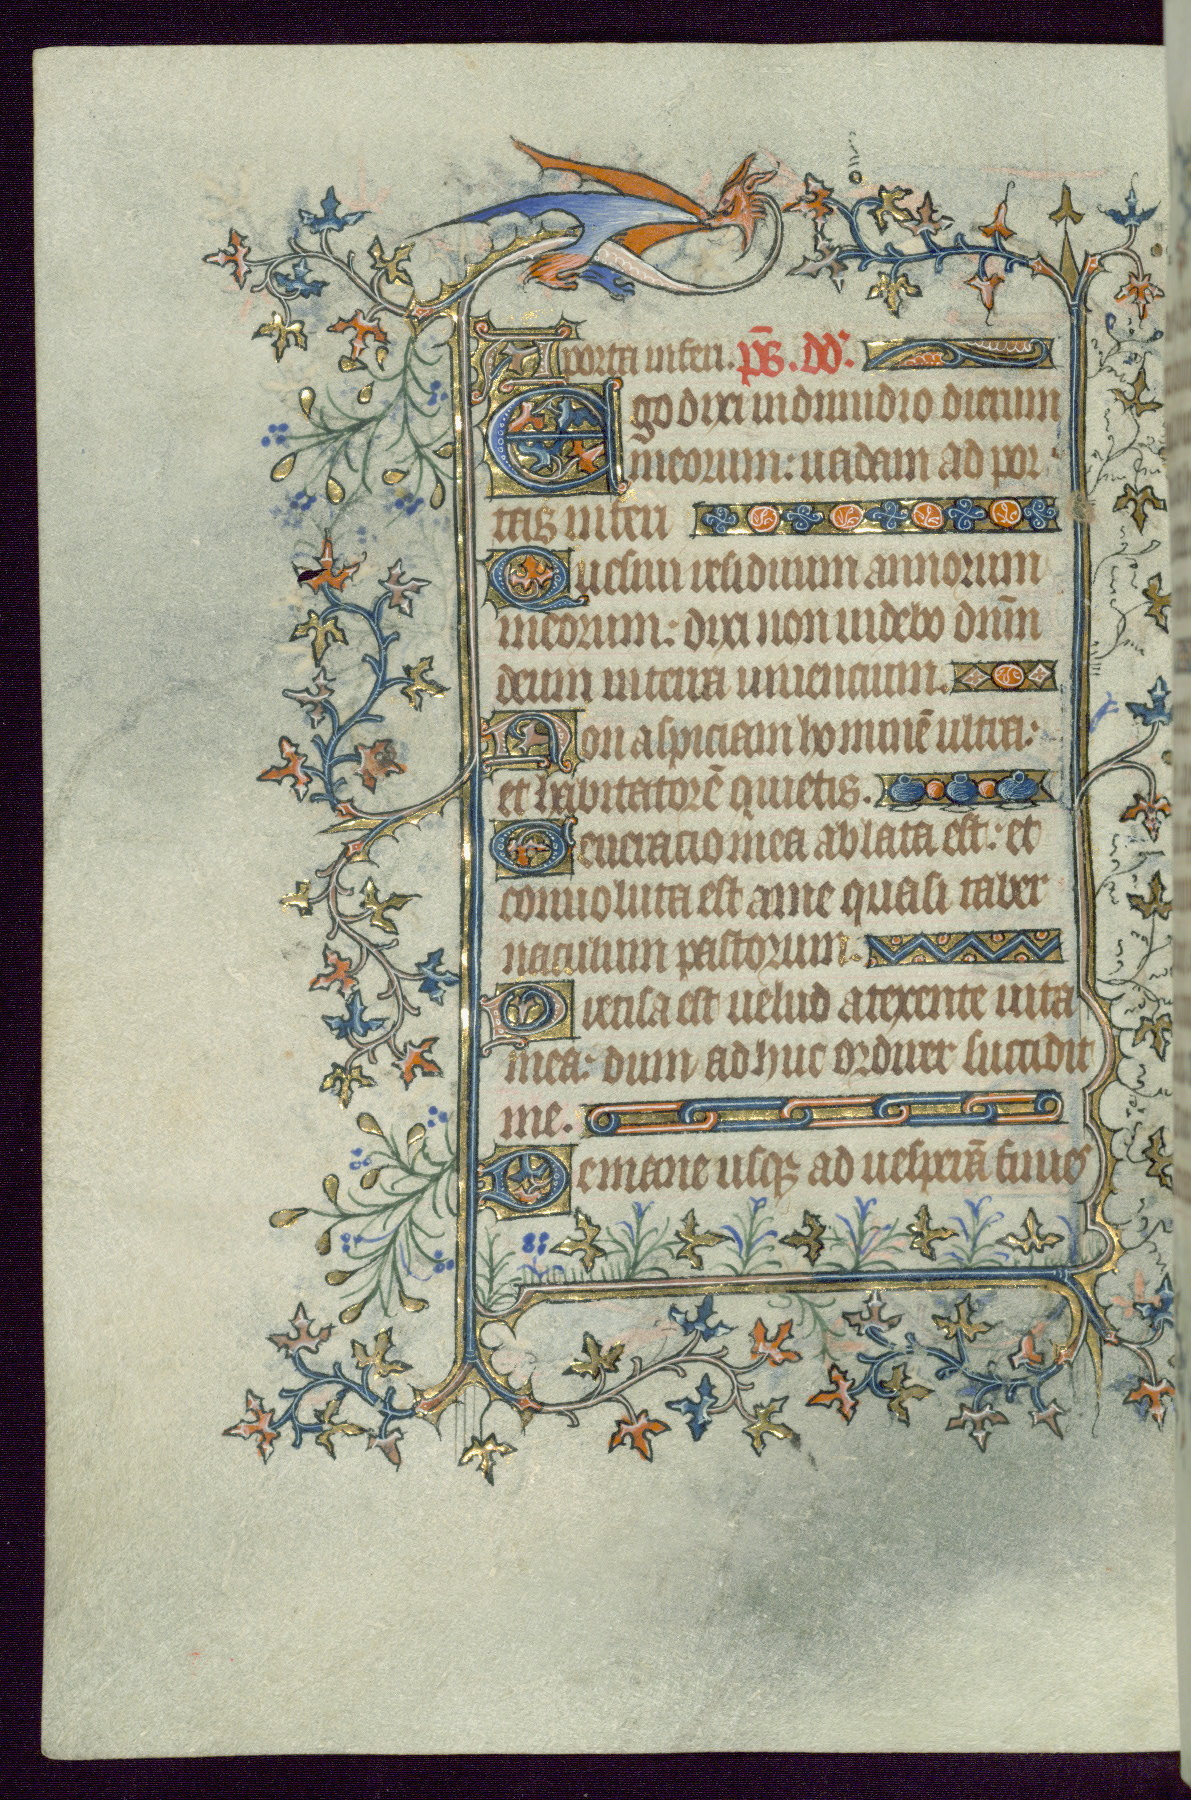 A porta inferi. ps. dd.
Ego dixi in dimidio dierum
meorum: uadam ad por
tas inferi
Quesiui residuum annorum
meorum: dixi non uidebo dn̄m
deum in terra uiuencium.
Non aspiciam hominē ultra:
et habitatorē quietis.
Generacio mea ablata est: et
conuoluta est a me quasi taber
naculum pastorum.
Precisa est uelud a texente uita
mea: dum adhuc ordirer succidit
me.
De mane usq; ad uesperā finies